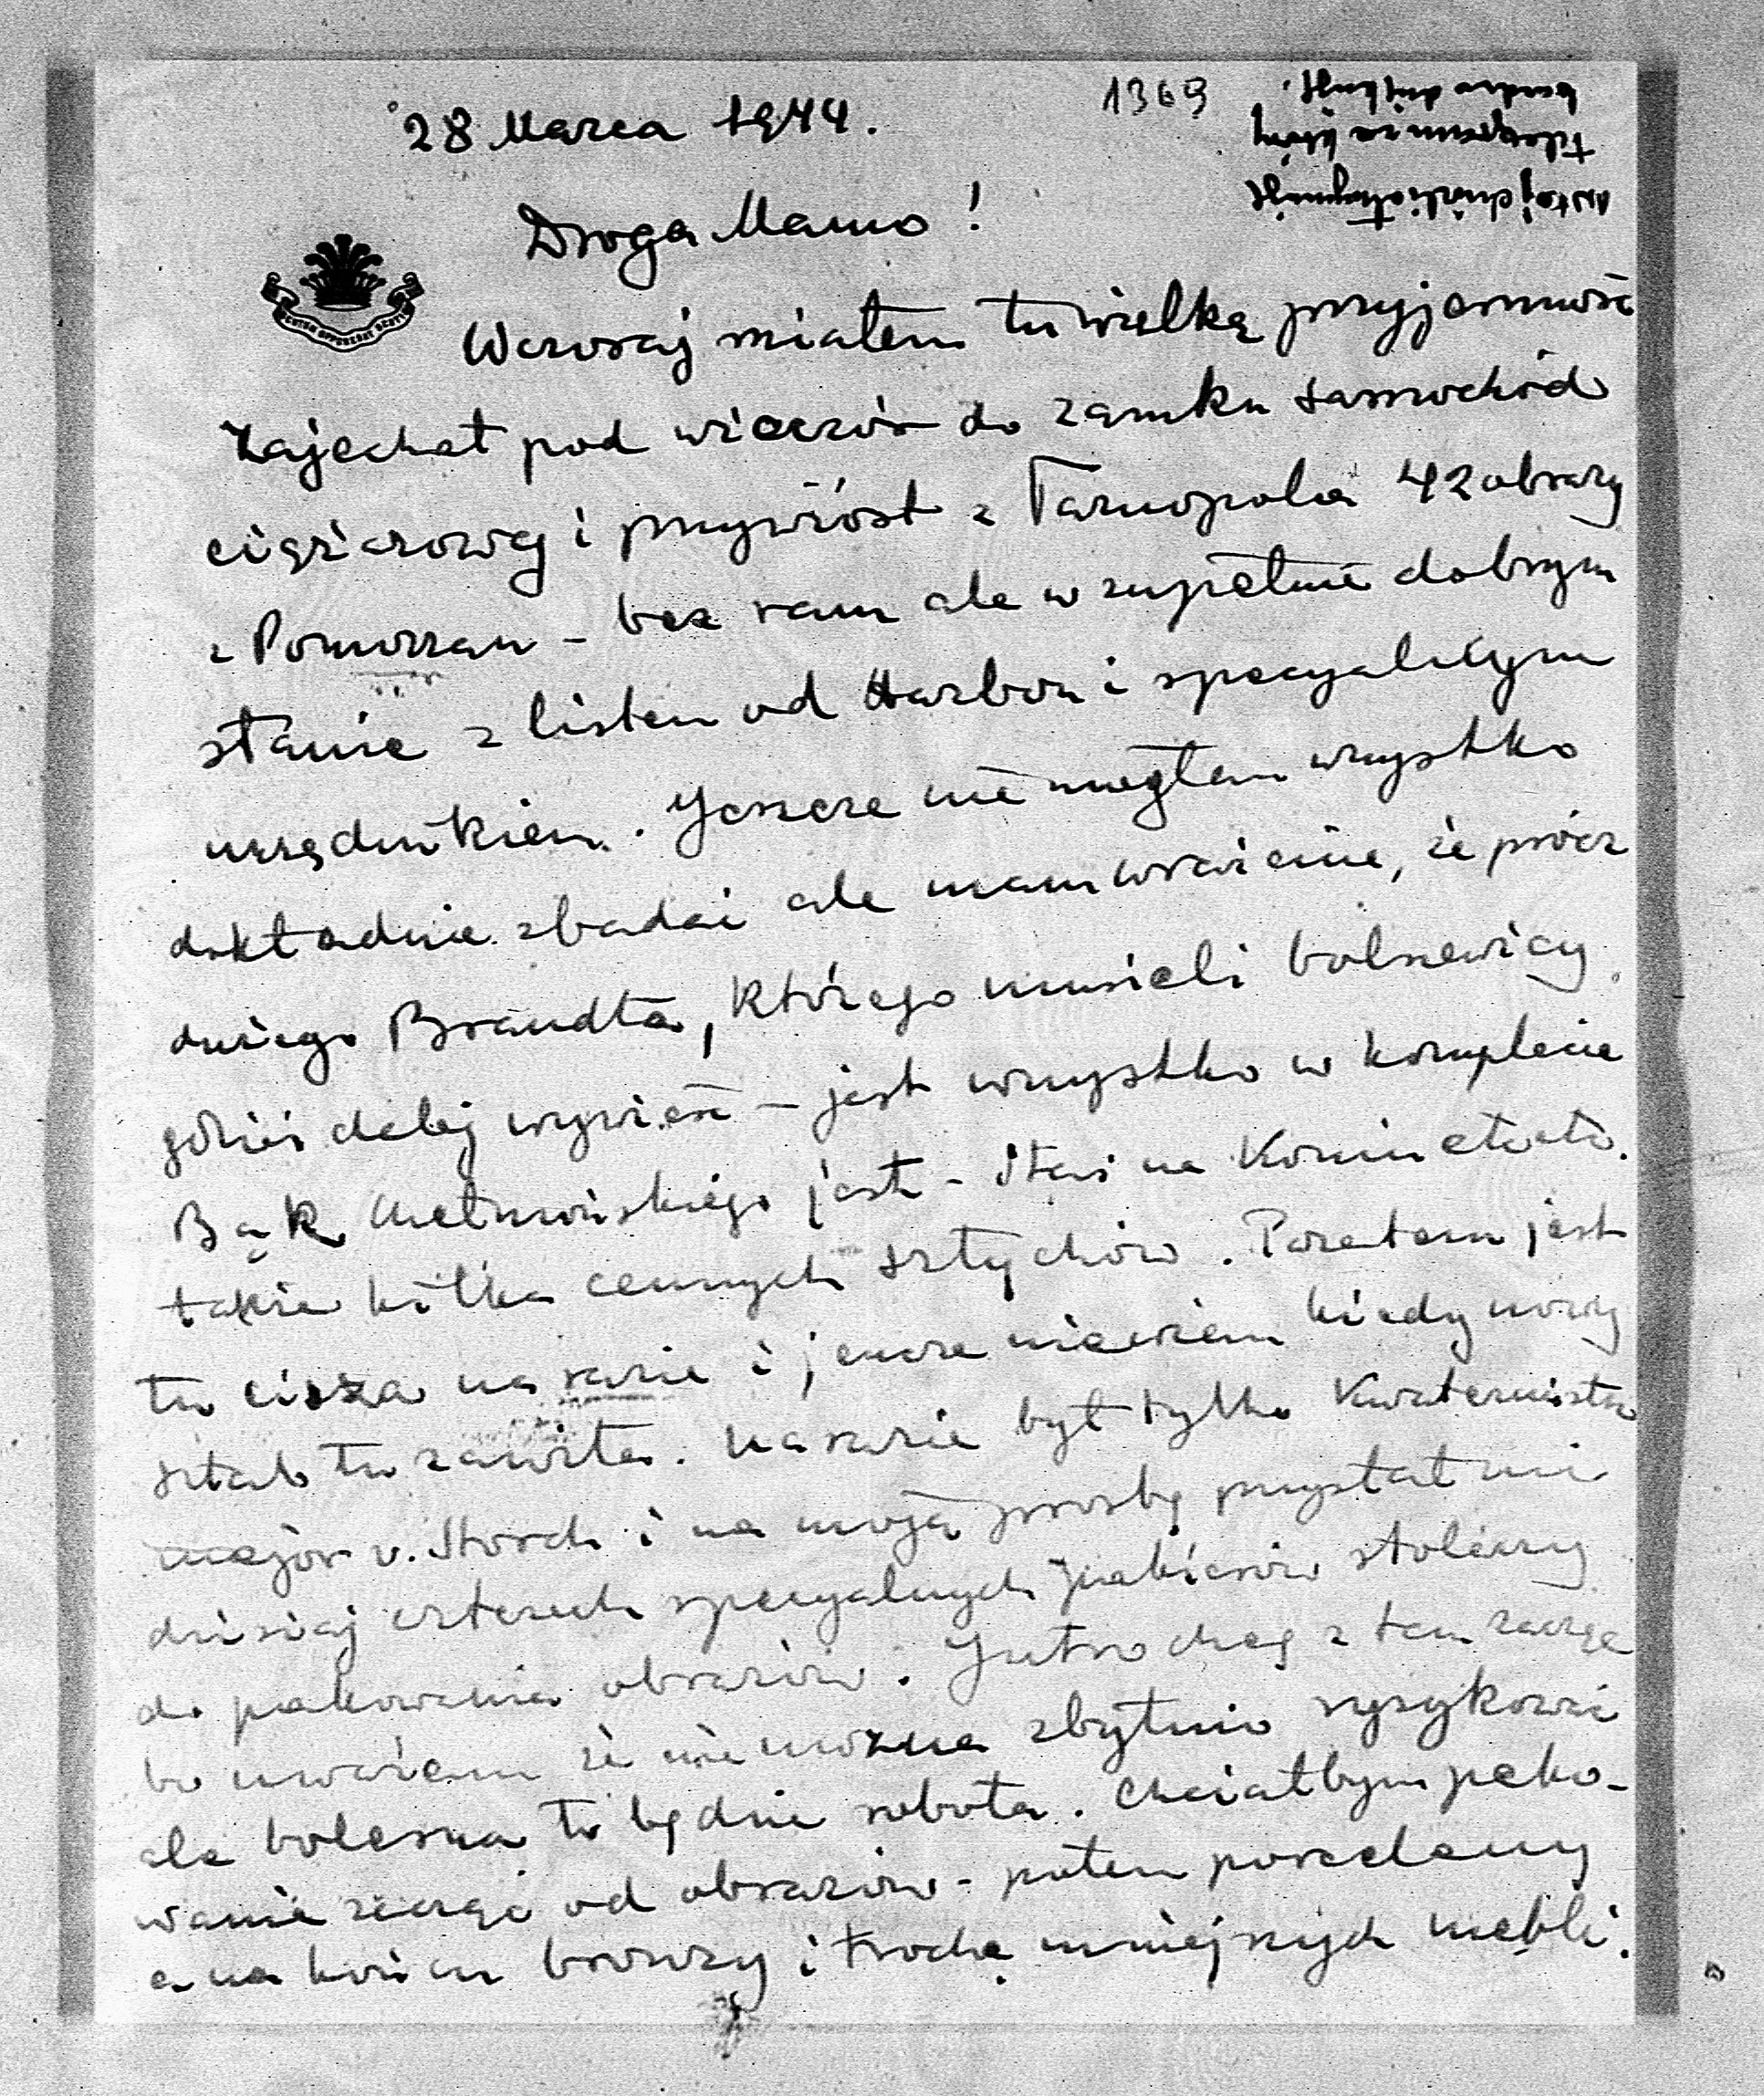 28 Marca 1944.
1369
Wczoraj miałem tu wielką przyjemność
Droga Mamo!
Zajechał pod wieczór do zamku samochód
ciężarowy i przywiózł z Tarnopola 42 obrazy
z Pomorzan – bez ram ale w zupełnie dobrym
stanie z listem od Harbou i specyalnym
urzędnikiem. Jeszcze nie mogłem wszystko
dokładnie zbadać ale mam wrażenie, że prócz
dużego Brandta, którego musieli bolszewicy
gdzieś dalej wywieść – jest wszystko w komplecie
Bąk Chełmońskiego jest – Staś na
także kilka cennych sztychów. Pozatem jest
tu cisza na razie i jeszcze nie wiem kiedy nowy
sztab tu zawita. Na razie był tylko Kwatermistrz
major v. Storch i na moją prośbę przysłał mi
dzisiaj czterech specyalnych stolarzy
do pakowania obrazów. Jutro chcę z tem zacząć
bo uważam że nie można zbytnio ryzykować
ale bolesna to będzie robota. Chciałbym pako-
wanie zacząć od obrazów – potem porcelany
a na końcu bronzy i trochę mniejszych mebli.